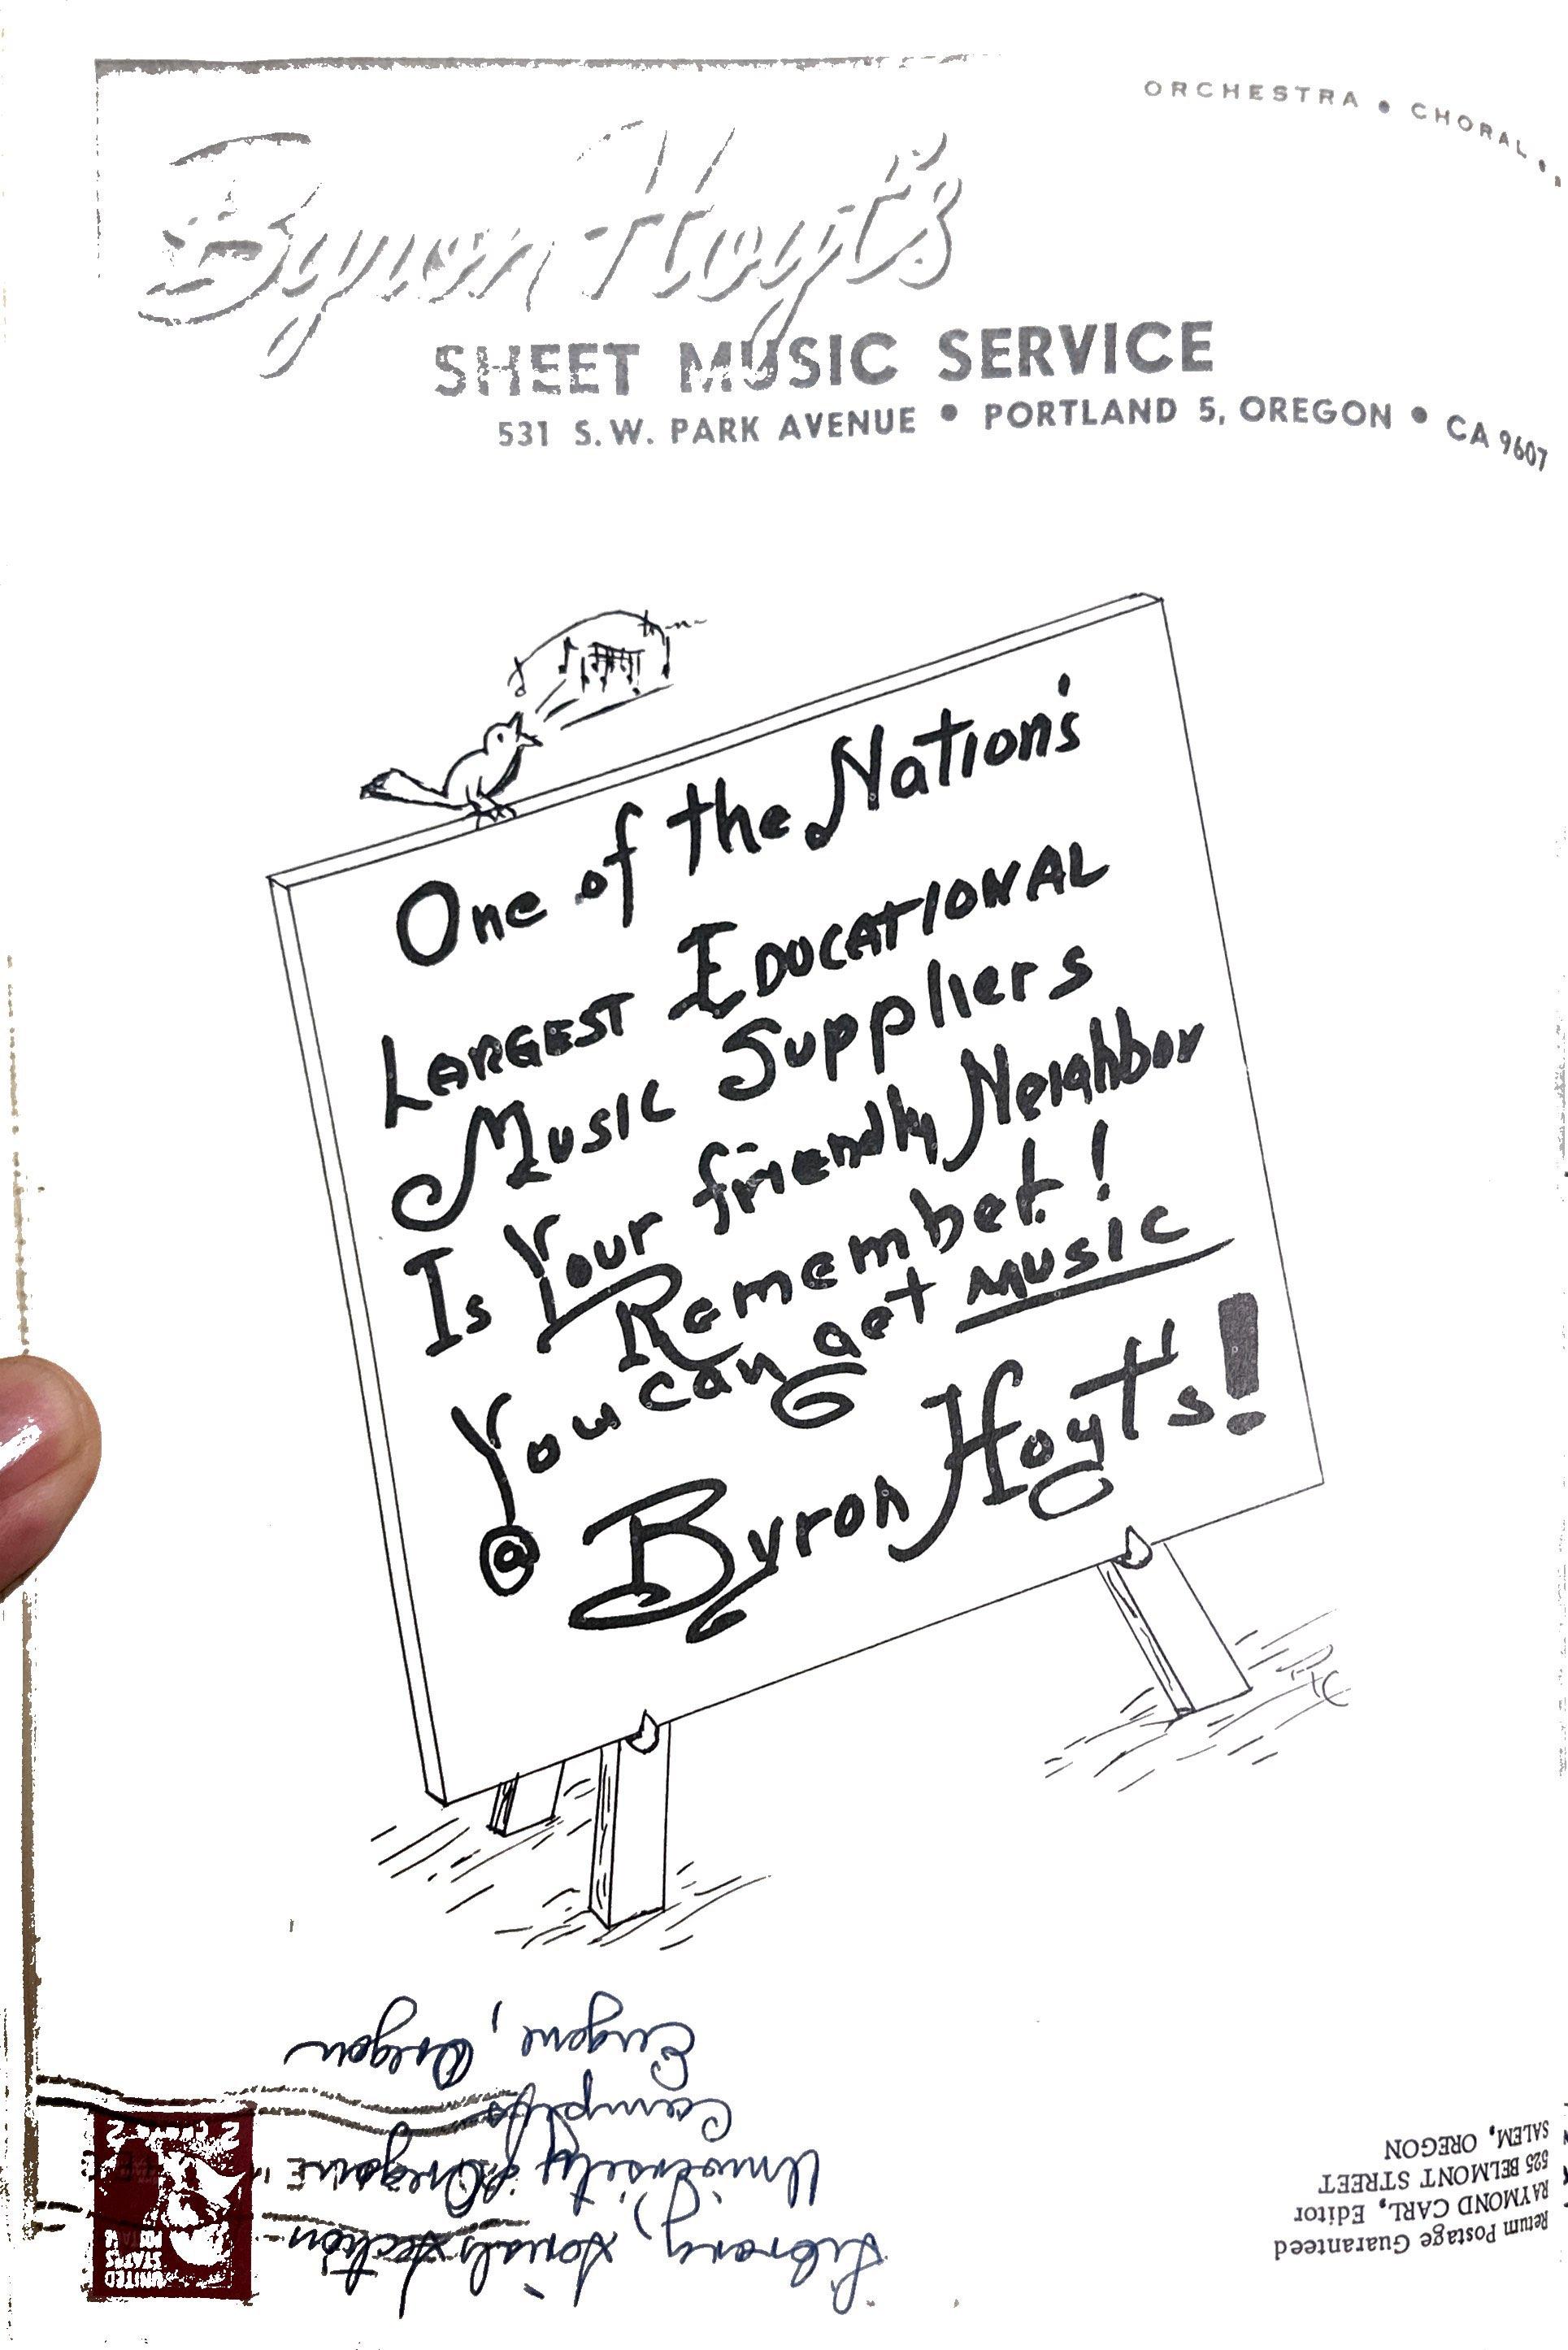 ORCHESTRA • CHORAL •
Byron Hoyt's
SHEET MUSIC SERVICE
531 S.W. PARK AVENUE • PORTLAND 5, OREGON • CA 9607
One of the Nation's
LARGEST EDUCATIONAL
Music Suppliers
Is Your friendly Neighbor
Remember!
You can get MUSIC
@ Byron Hoyt's!
Return Postage Guaranteed
RAYMOND CARL, Editor
525 BELMONT STREET
SALEM, OREGON
UNITED
STATES
Library, Serials Section
University of Oregon
Campus
Eugene, Oregon